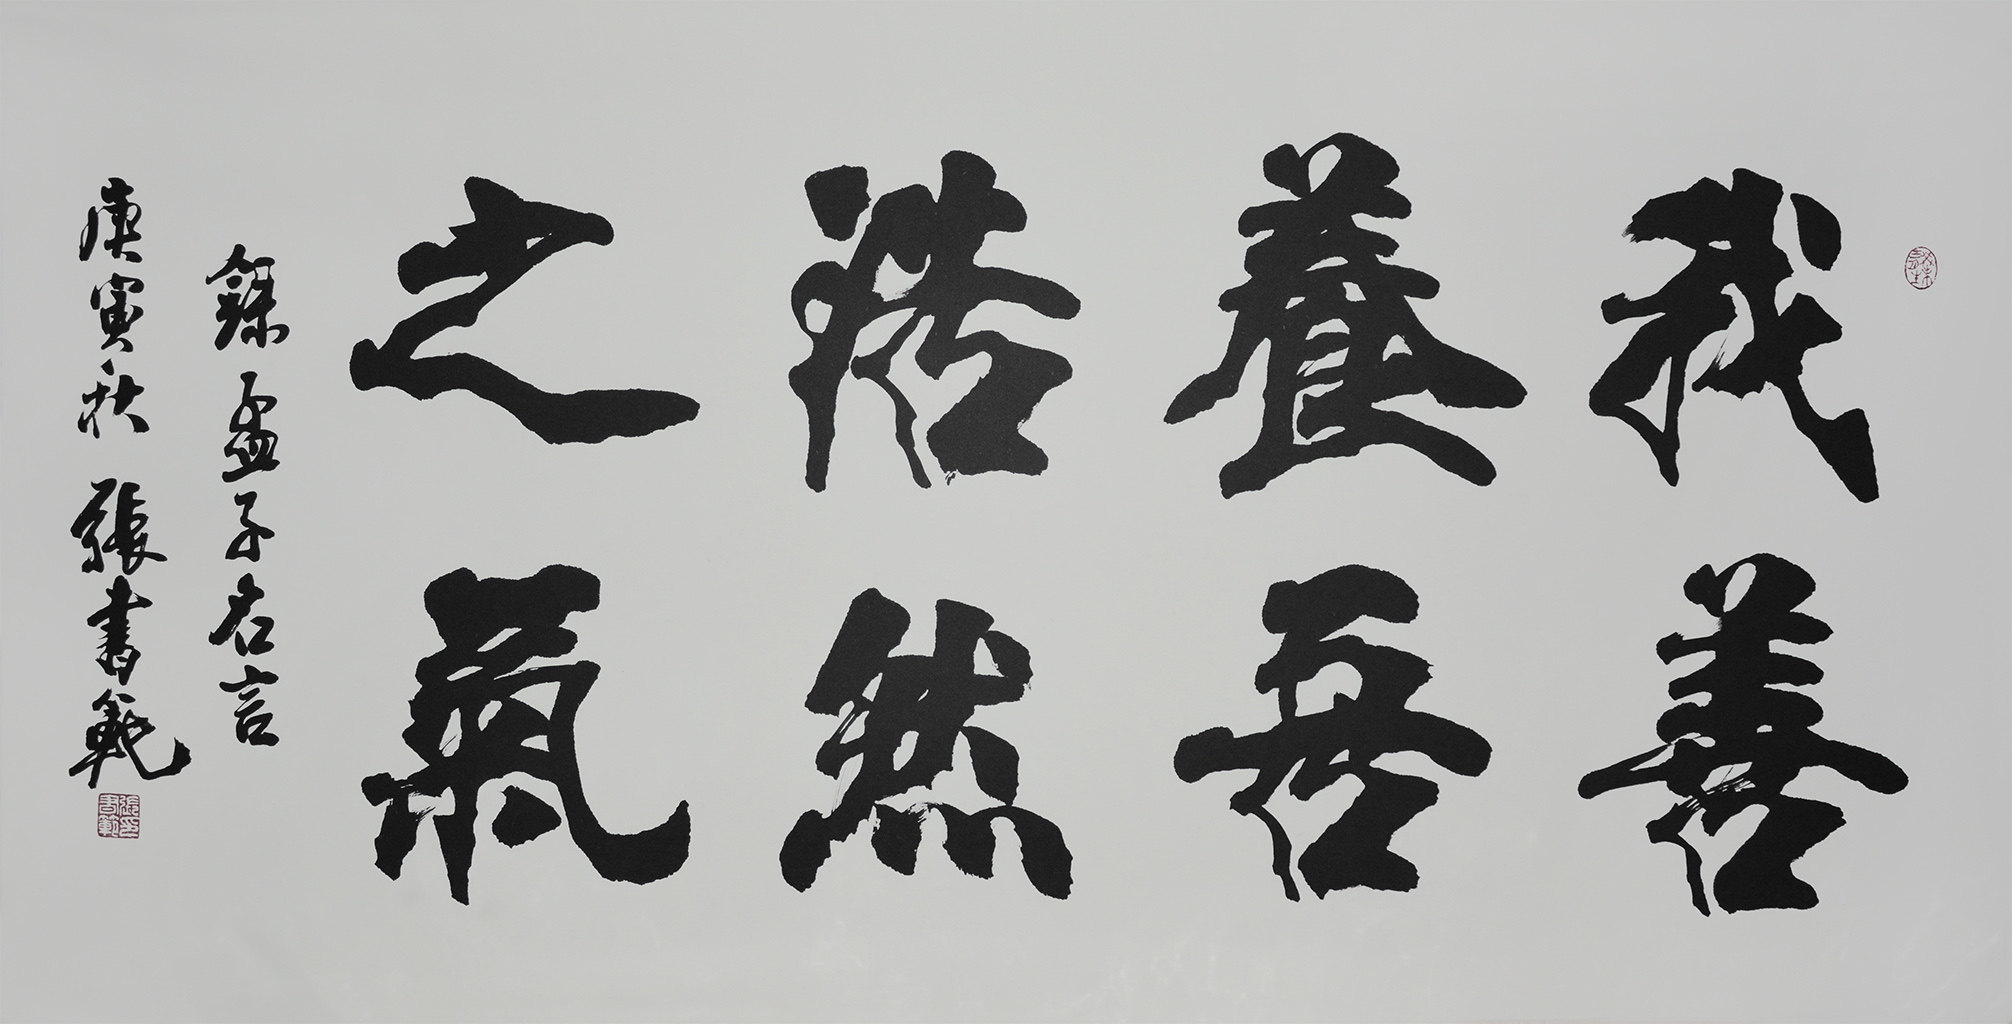 我善
養吾
浩然
之氣
錄孟子名言
庚寅秋 張書範
張書範印